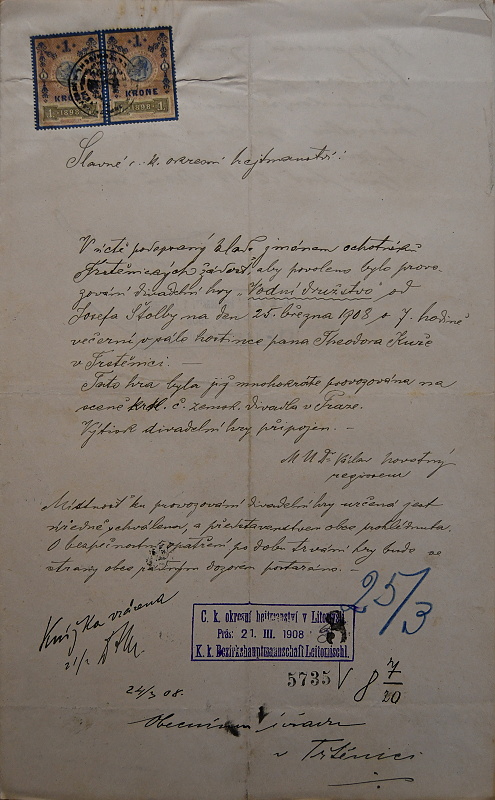 1 1
KRONE KRONE
1 1898 1898 1
Slavné c. k. okresní hejtmanství!
V úctě podepsaný klade jménem ochotníků
Trstěnických žádost, aby povoleno bylo provo-
zování divadelní hry „Vodní družstvo" od
Josefa Štolby na den 25. března 1908 o 7. hodině
večerní v sále hostince pana Theodora Kuře
v Trstěnici. —
Tato hra byla již mnohokráte provozována na
scéně král. č. zemsk. divadla v Praze.
Výtisk divadelní hry připojen. —
MUDr Novotný
regisseur
Místnost ku provozování divadelní hry určená jest
úředně schválena, a představenstvem obce prohlédnuta.
O bezpečnostní opatření po dobu trvání hry bude ze
strany obce řádným dozorem postaráno. —
25/3
Knížka vrácena
C. k. okresní hejtmanství v Litomyšli.
Präs: 21. III. 1908
K. k. Bezirkshauptmannschaft Leitomischl.
5735 8 7/20
24/3 08.
Obecnímu úřadu
v Trstěnici